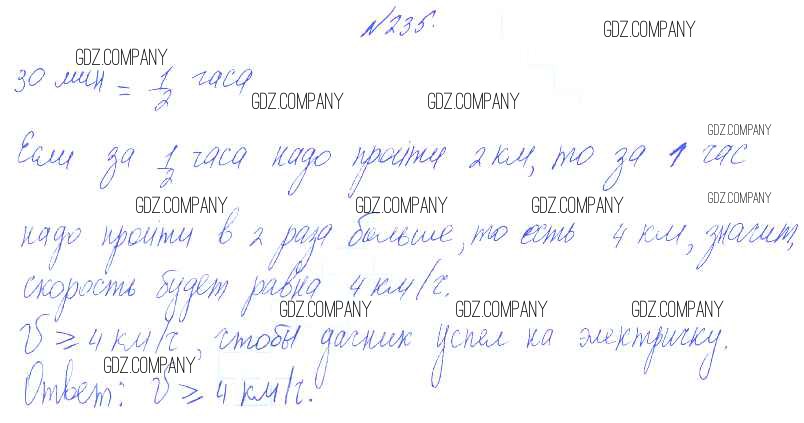 №235.
GDZ.COMPANY
GDZ.COMPANY
30 мин = 1/2 часа
GDZ.COMPANY GDZ.COMPANY
GDZ.COMPANY
Если за 1/2 часа надо пройти 2 км, то за 1 час
GDZ.COMPANY GDZ.COMPANY GDZ.COMPANY GDZ.COMPANY
надо пройти в 2 раза больше, то есть 4 км, значит,
скорость будет равна 4 км/ч.
GDZ.COMPANY GDZ.COMPANY GDZ.COMPANY
V ≥ 4 км/ч, чтобы дачник успел на электричку.
GDZ.COMPANY
Ответ: V ≥ 4 км/ч.